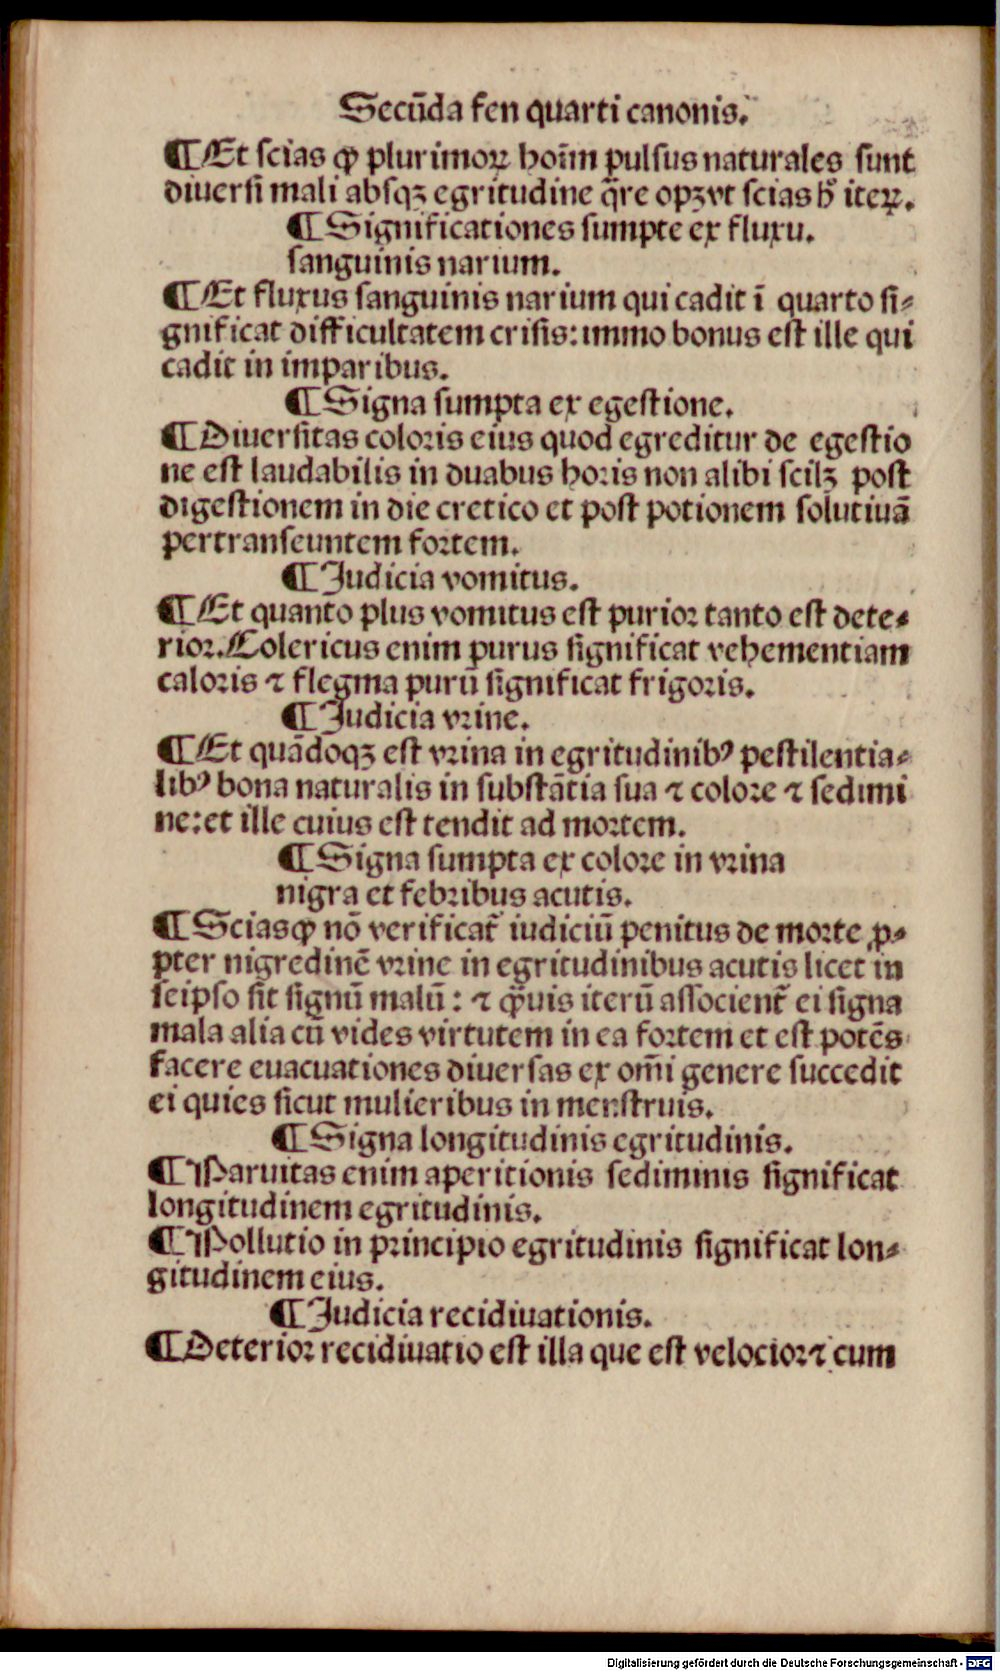 Secūda fen quarti canonis.
¶ Et scias ꝙ plurimoꝝ hoīm pulsus naturales sunt
diuersi mali absqꝫ egritudine q̄re opꝫ vt scias h̾ iteꝝ.
¶ Significationes sumpte ex fluxu.
sanguinis narium.
¶ Et fluxus sanguinis narium qui cadit ī quarto si⸗
gnificat difficultatem crisis: immo bonus est ille qui
cadit in imparibus.
¶ Signa sumpta ex egestione.
¶ Diuersitas coloris eius quod egreditur de egestio
ne est laudabilis in duabus horis non alibi scilꝫ post
digestionem in die cretico et post potionem solutiuā
pertranseuntem fortem.
¶ Judicia vomitus.
¶ Et quanto plus vomitus est purior tanto est dete⸗
rior. Colericus enim purus significat vehementiam
caloris ⁊ flegma purū significat frigoris.
¶ Judicia vrine.
¶ Et quādoqꝫ est vrina in egritudinibꝰ pestilentia⸗
libꝰ bona naturalis in substātia sua ⁊ colore ⁊ sedimi
ne: et ille cuius est tendit ad mortem.
¶ Signa sumpta ex colore in vrina
nigra et febribus acutis.
¶ Scias ꝙ nō verificat᷑ iudiciū penitus de morte ꝓ⸗
pter nigredinē vrine in egritudinibus acutis licet in
seipso sit signū malū: ⁊ ꝙ̄uis iterū associent᷑ ei signa
mala alia cū vides virtutem in ea fortem et est potēs
facere euacuationes diuersas ex om̄i genere succedit
ei quies sicut mulieribus in menstruis.
¶ Signa longitudinis egritudinis.
¶ Paruitas enim aperitionis sediminis significat
longitudinem egritudinis.
¶ Pollutio in principio egritudinis significat lon⸗
gitudinem eius.
¶ Judicia recidiuationis.
¶ Deterior recidiuatio est illa que est velocior ⁊ cum
Digitalisierung gefördert durch die Deutsche Forschungsgemeinschaft - DFG